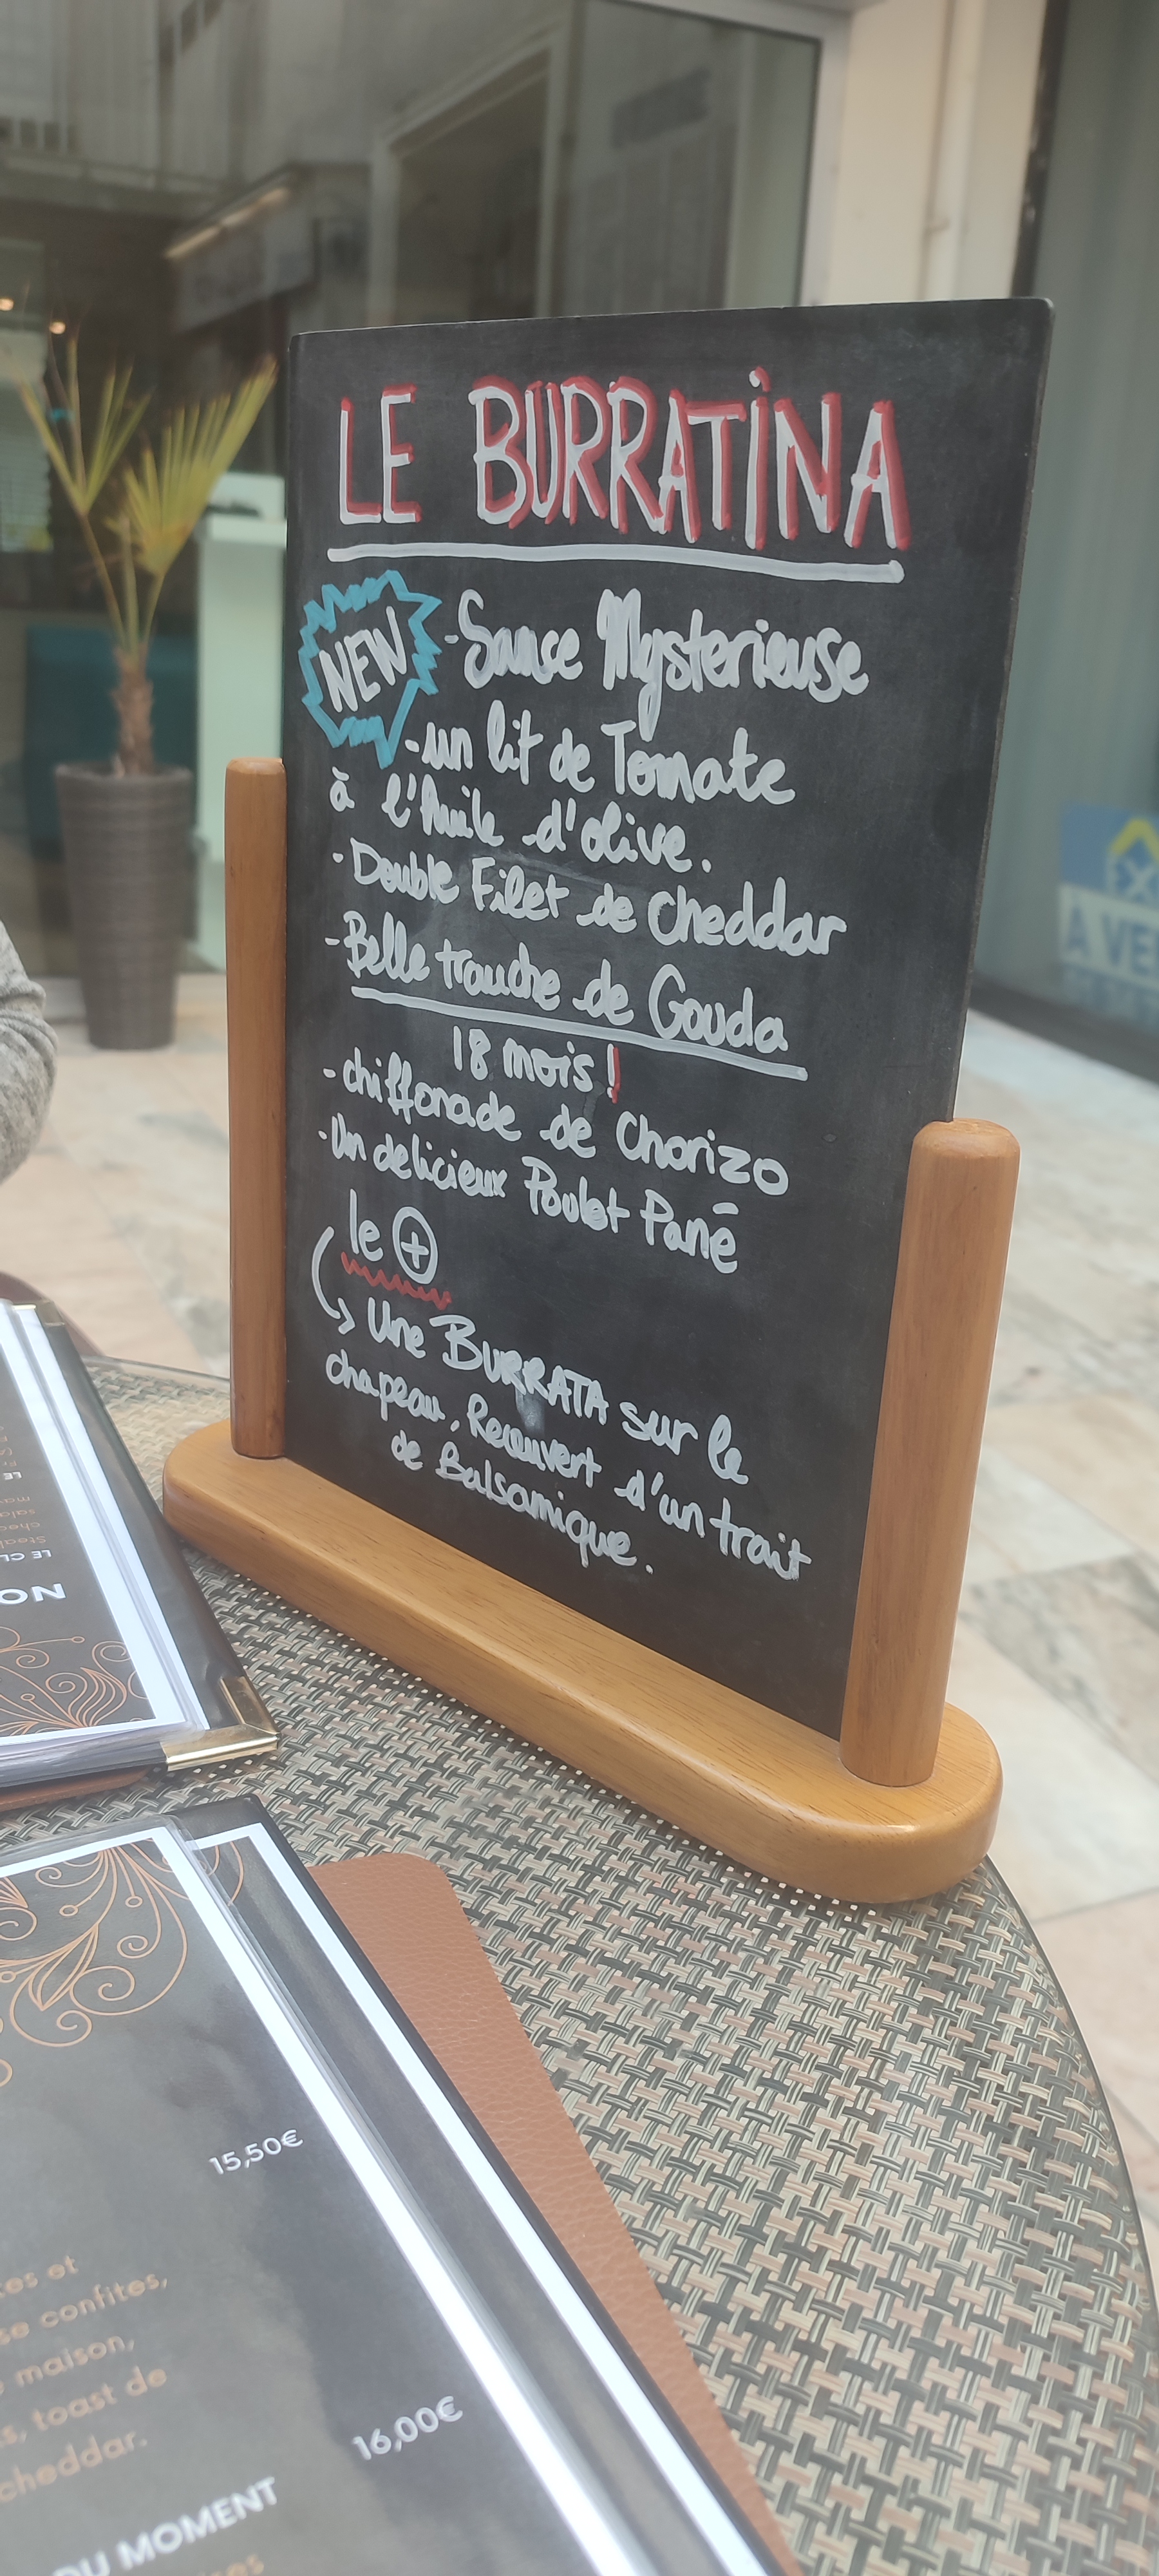 LE BURRATINA
NEW
- Sauce Mysterieuse
- un lit de Tomate
à l'huile d'olive.
- Double Filet de Cheddar
- Belle tranche de Gouda
18 mois !
- chiffonade de Chorizo
- Un delicieux Poulet Pané
le +
Une BURRATA sur le
chapeau, Recouvert d'un trait
de Balsamique.
A VE
NO
LE CL
15,50€
es et
se confites,
maison,
, toast de
cheddar.
16,00€
DU MOMENT